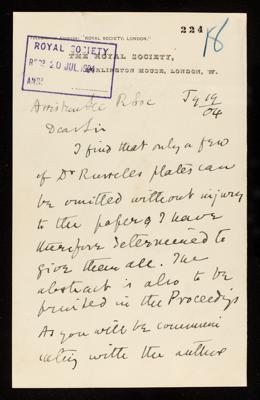 224
18
TELEGRAPHIC ADDRESS: "ROYAL SOCIETY, LONDON."
ROYAL SOCIETY
20 JUL. 1904
THE ROYAL SOCIETY,
BURLINGTON HOUSE, LONDON, W.
R. Soc Jy 19/04
Dear Sir
I find that only a few
of Dr Russells plates can
be omitted without injury
to the paper & I have
therefore determined to
give them all. The
abstract is also to be
printed in the Proceedigs
As you will be communi
cating with the author